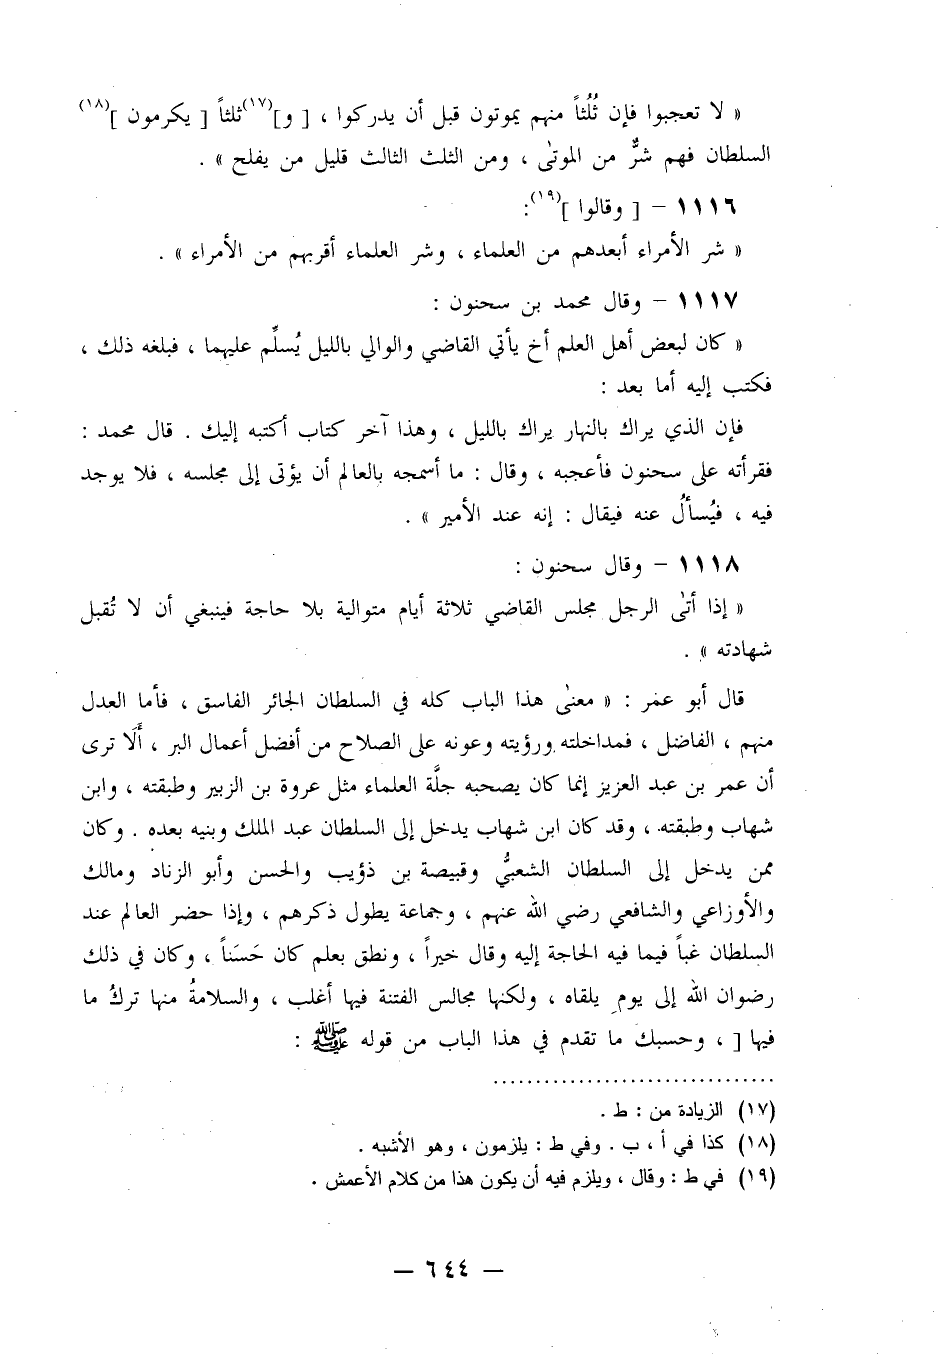 « لا تعجبوا فإن ثُلُثاً منهم يموتون قبل أن يدركوا ، [ و](١٧) ثلثاً [ يكرمون ](١٨)
السلطان فهم شرٌّ من الموتىٰ ، ومن الثلث الثالث قليل من يفلح » .
١١١٦ – [ وقالوا ](١٩):
« شر الأمراء أبعدهم من العلماء ، وشر العلماء أقربهم من الأمراء » .
١١١٧ – وقال محمد بن سحنون :
« كان لبعض أهل العلم أخ يأتي القاضي والوالي بالليل يُسلِّم عليهما ، فبلغه ذلك ،
فكتب إليه أما بعد :
فإن الذي يراك بالنهار يراك بالليل ، وهذا آخر كتاب أكتبه إليك . قال محمد :
فقرأته على سحنون فأعجبه ، وقال : ما أسمجه بالعالم أن يؤتى إلى مجلسه ، فلا يوجد
فيه ، فيُسألُ عنه فيقال : إنه عند الأمير » .
١١١٨ – وقال سحنون :
« إذا أتىٰ الرجل مجلس القاضي ثلاثة أيام متوالية بلا حاجة فينبغي أن لا تُقبل
شهادته » .
قال أبو عمر : « معنىٰ هذا الباب كله في السلطان الجائر الفاسق ، فأما العدل
منهم ، الفاضل ، فمداخلته ورؤيته وعونه على الصلاح من أفضل أعمال البر ، أَلَا ترى
أن عمر بن عبد العزيز إنما كان يصحبه جلَّة العلماء مثل عروة بن الزبير وطبقته ، وابن
شهاب وطبقته ، وقد كان ابن شهاب يدخل إلى السلطان عبد الملك وبنيه بعده . وكان
ممن يدخل إلى السلطان الشعبيُّ وقبيصة بن ذؤيب والحسن وأبو الزناد ومالك
والأوزاعي والشافعي رضي الله عنهم ، وجماعة يطول ذكرهم ، وإذا حضر العالم عند
السلطان غباً فيما فيه الحاجة إليه وقال خيراً ، ونطق بعلم كان حَسَناً ، وكان في ذلك
رضوان الله إلى يوم يلقاه ، ولكنها مجالس الفتنة فيها أغلب ، والسلامةُ منها تركُ ما
فيها [ ، وحسبك ما تقدم في هذا الباب من قوله ﷺ :
(١٧) الزيادة من : ط .
(١٨) كذا في أ ، ب . وفي ط : يلزمون ، وهو الأشبه .
(١٩) في ط : وقال ، ويلزم فيه أن يكون هذا من كلام الأعمش .
– ٦٤٤ –